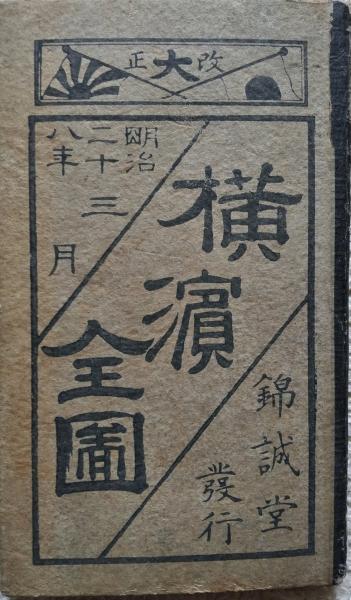 改大正
明治
二十三
八年
月
橫濱
全圖
錦誠堂
發行